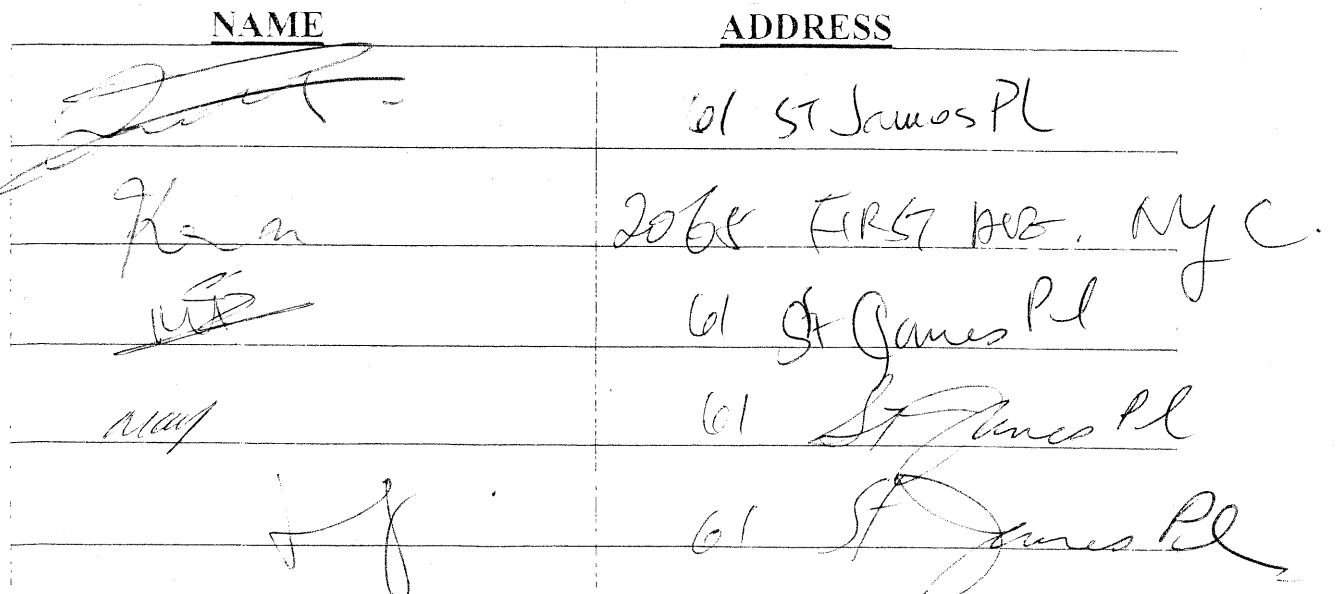 NAME ADDRESS
61 ST James Pl
2065 FIRST AVE. NYC.
61 St James Pl
61 St James Pl
61 St James Pl